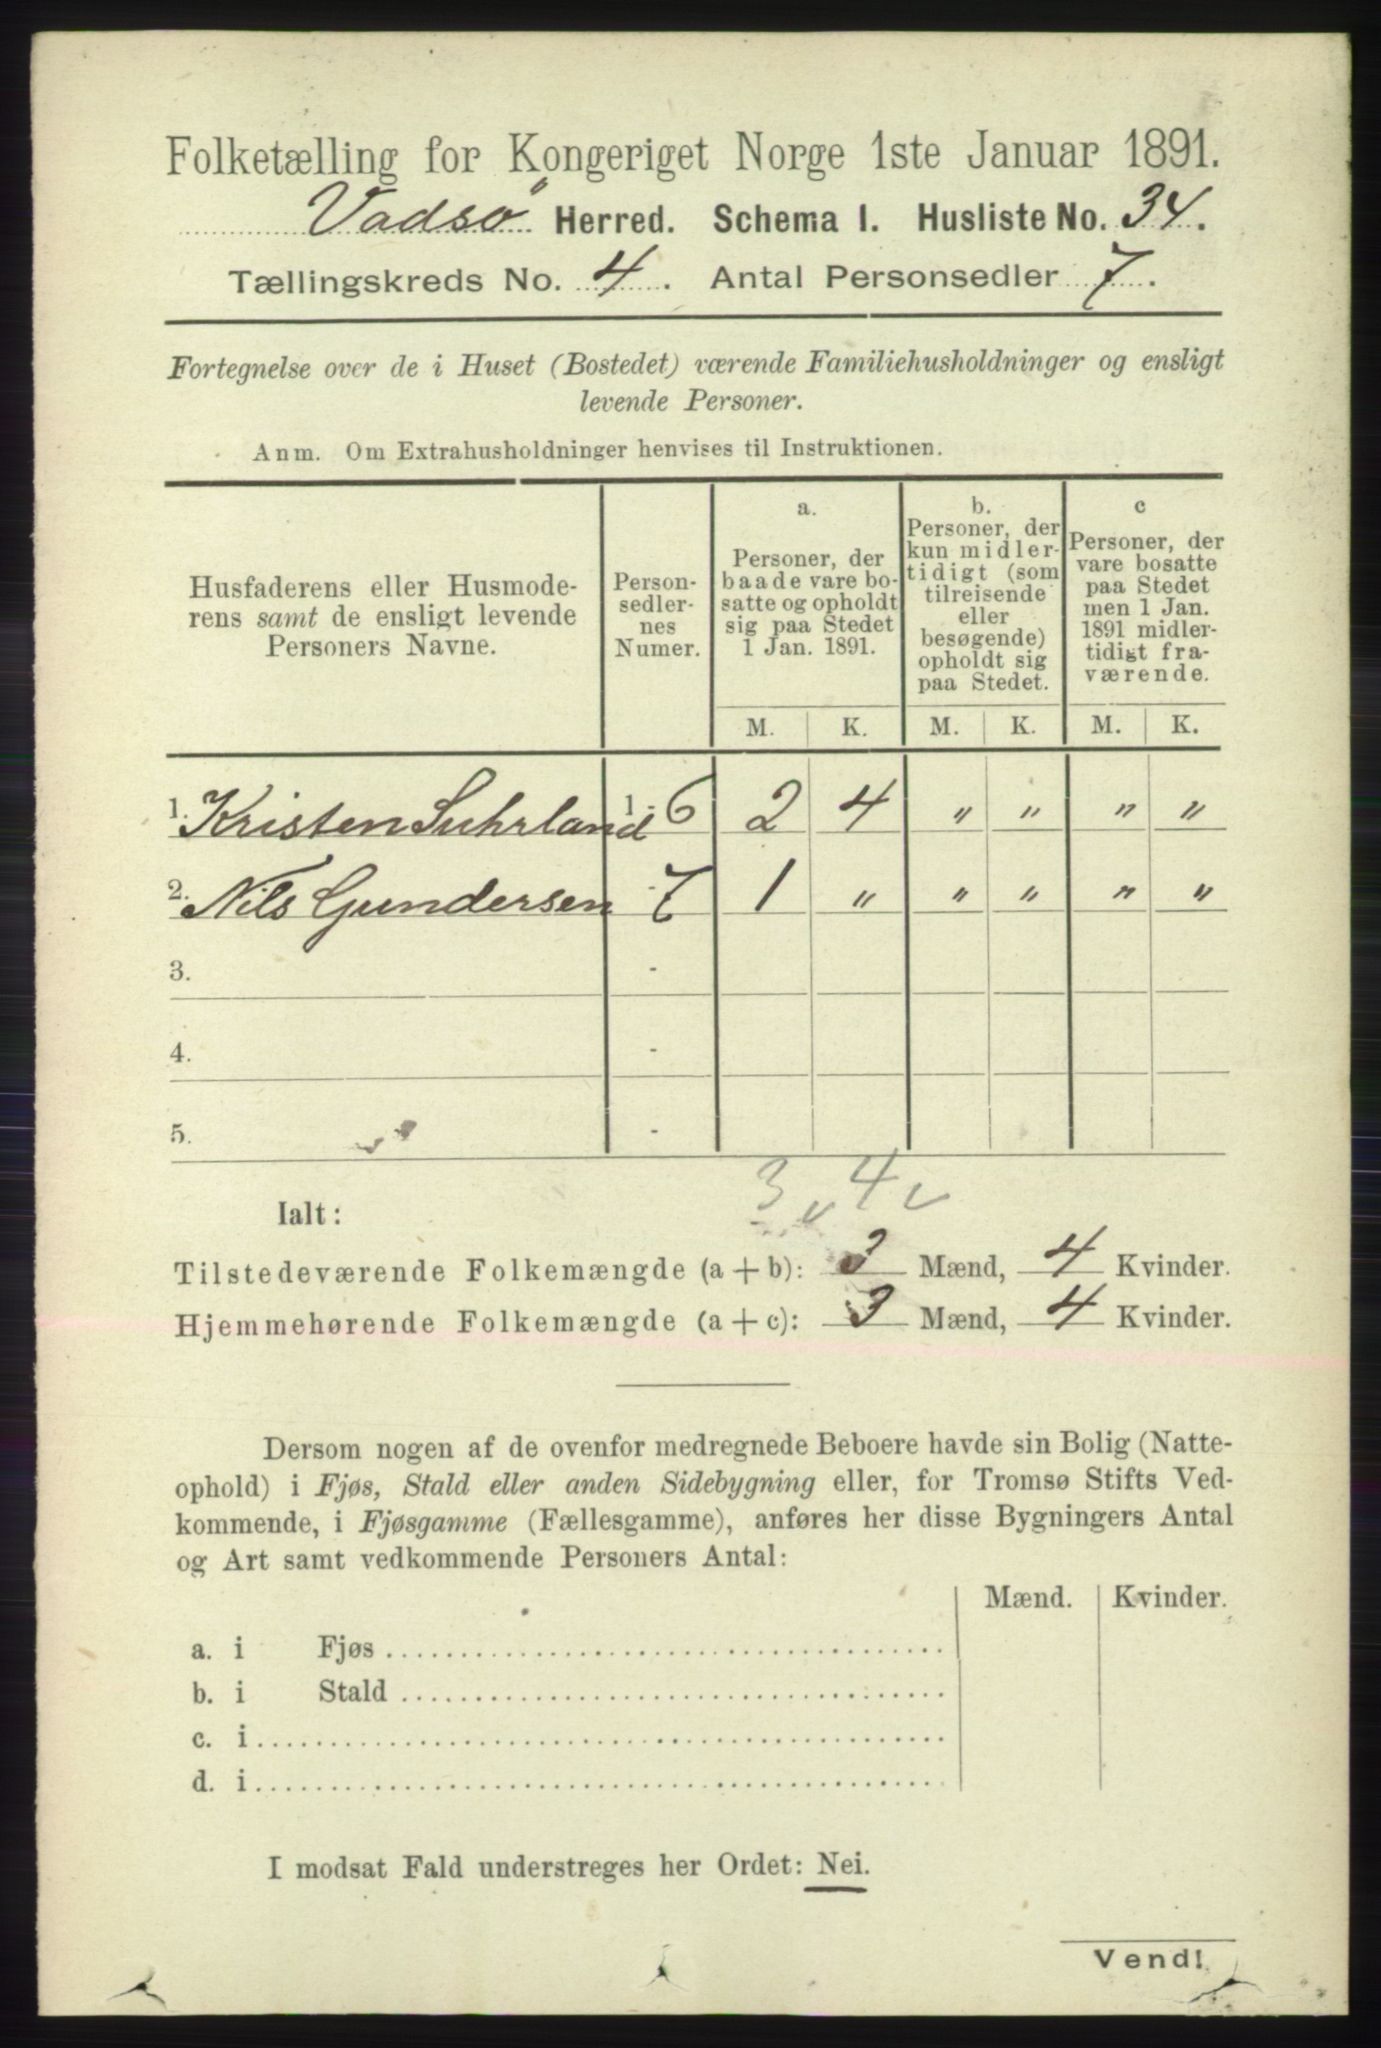 Folketælling for Kongeriget Norge 1ste Januar 1891.
Vadsö Herred. Schema I. Husliste No. 34.
Tællingskreds No. 4. Antal Personsedler 7.
Fortegnelse over de i Huset (Bostedet) værende Familiehusholdninger og ensligt
levende Personer.
Anm. Om Extrahusholdninger henvises til Instruktionen.
Husfaderens eller Husmode-
rens samt de ensligt levende
Personers Navne.
Person-
sedler-
nes
Numer.
a.
Personer, der
baade vare bo-
satte og opholdt
sig paa Stedet
1 Jan. 1891.
b.
Personer, der
kun midler-
tidigt (som
tilreisende
eller
besøgende)
opholdt sig
paa Stedet.
c
Personer, der
vare bosatte
paa Stedet
men 1 Jan.
1891 midler-
tidigt fra-
værende.
M. K. M. K. M. K.
1. Kristen Suhrland 1 - 6 2 4 " " " "
2. Nils Gundersen - 7 1 " " " " "
3. -
4. -
5. -
3 4
Ialt:
Tilstedeværende Folkemængde (a + b): 3 Mænd, 4 Kvinder.
Hjemmehørende Folkemængde (a + c): 3 Mænd, 4 Kvinder.
Dersom nogen af de ovenfor medregnede Beboere havde sin Bolig (Natte-
ophold) i Fjøs, Stald eller anden Sidebygning eller, for Tromsø Stifts Ved-
kommende, i Fjøsgamme (Fællesgamme), anføres her disse Bygningers Antal
og Art samt vedkommende Personers Antal:
Mænd. Kvinder.
a. i Fjøs
b. i Stald
c. i
d. i
I modsat Fald understreges her Ordet: Nei.
Vend!